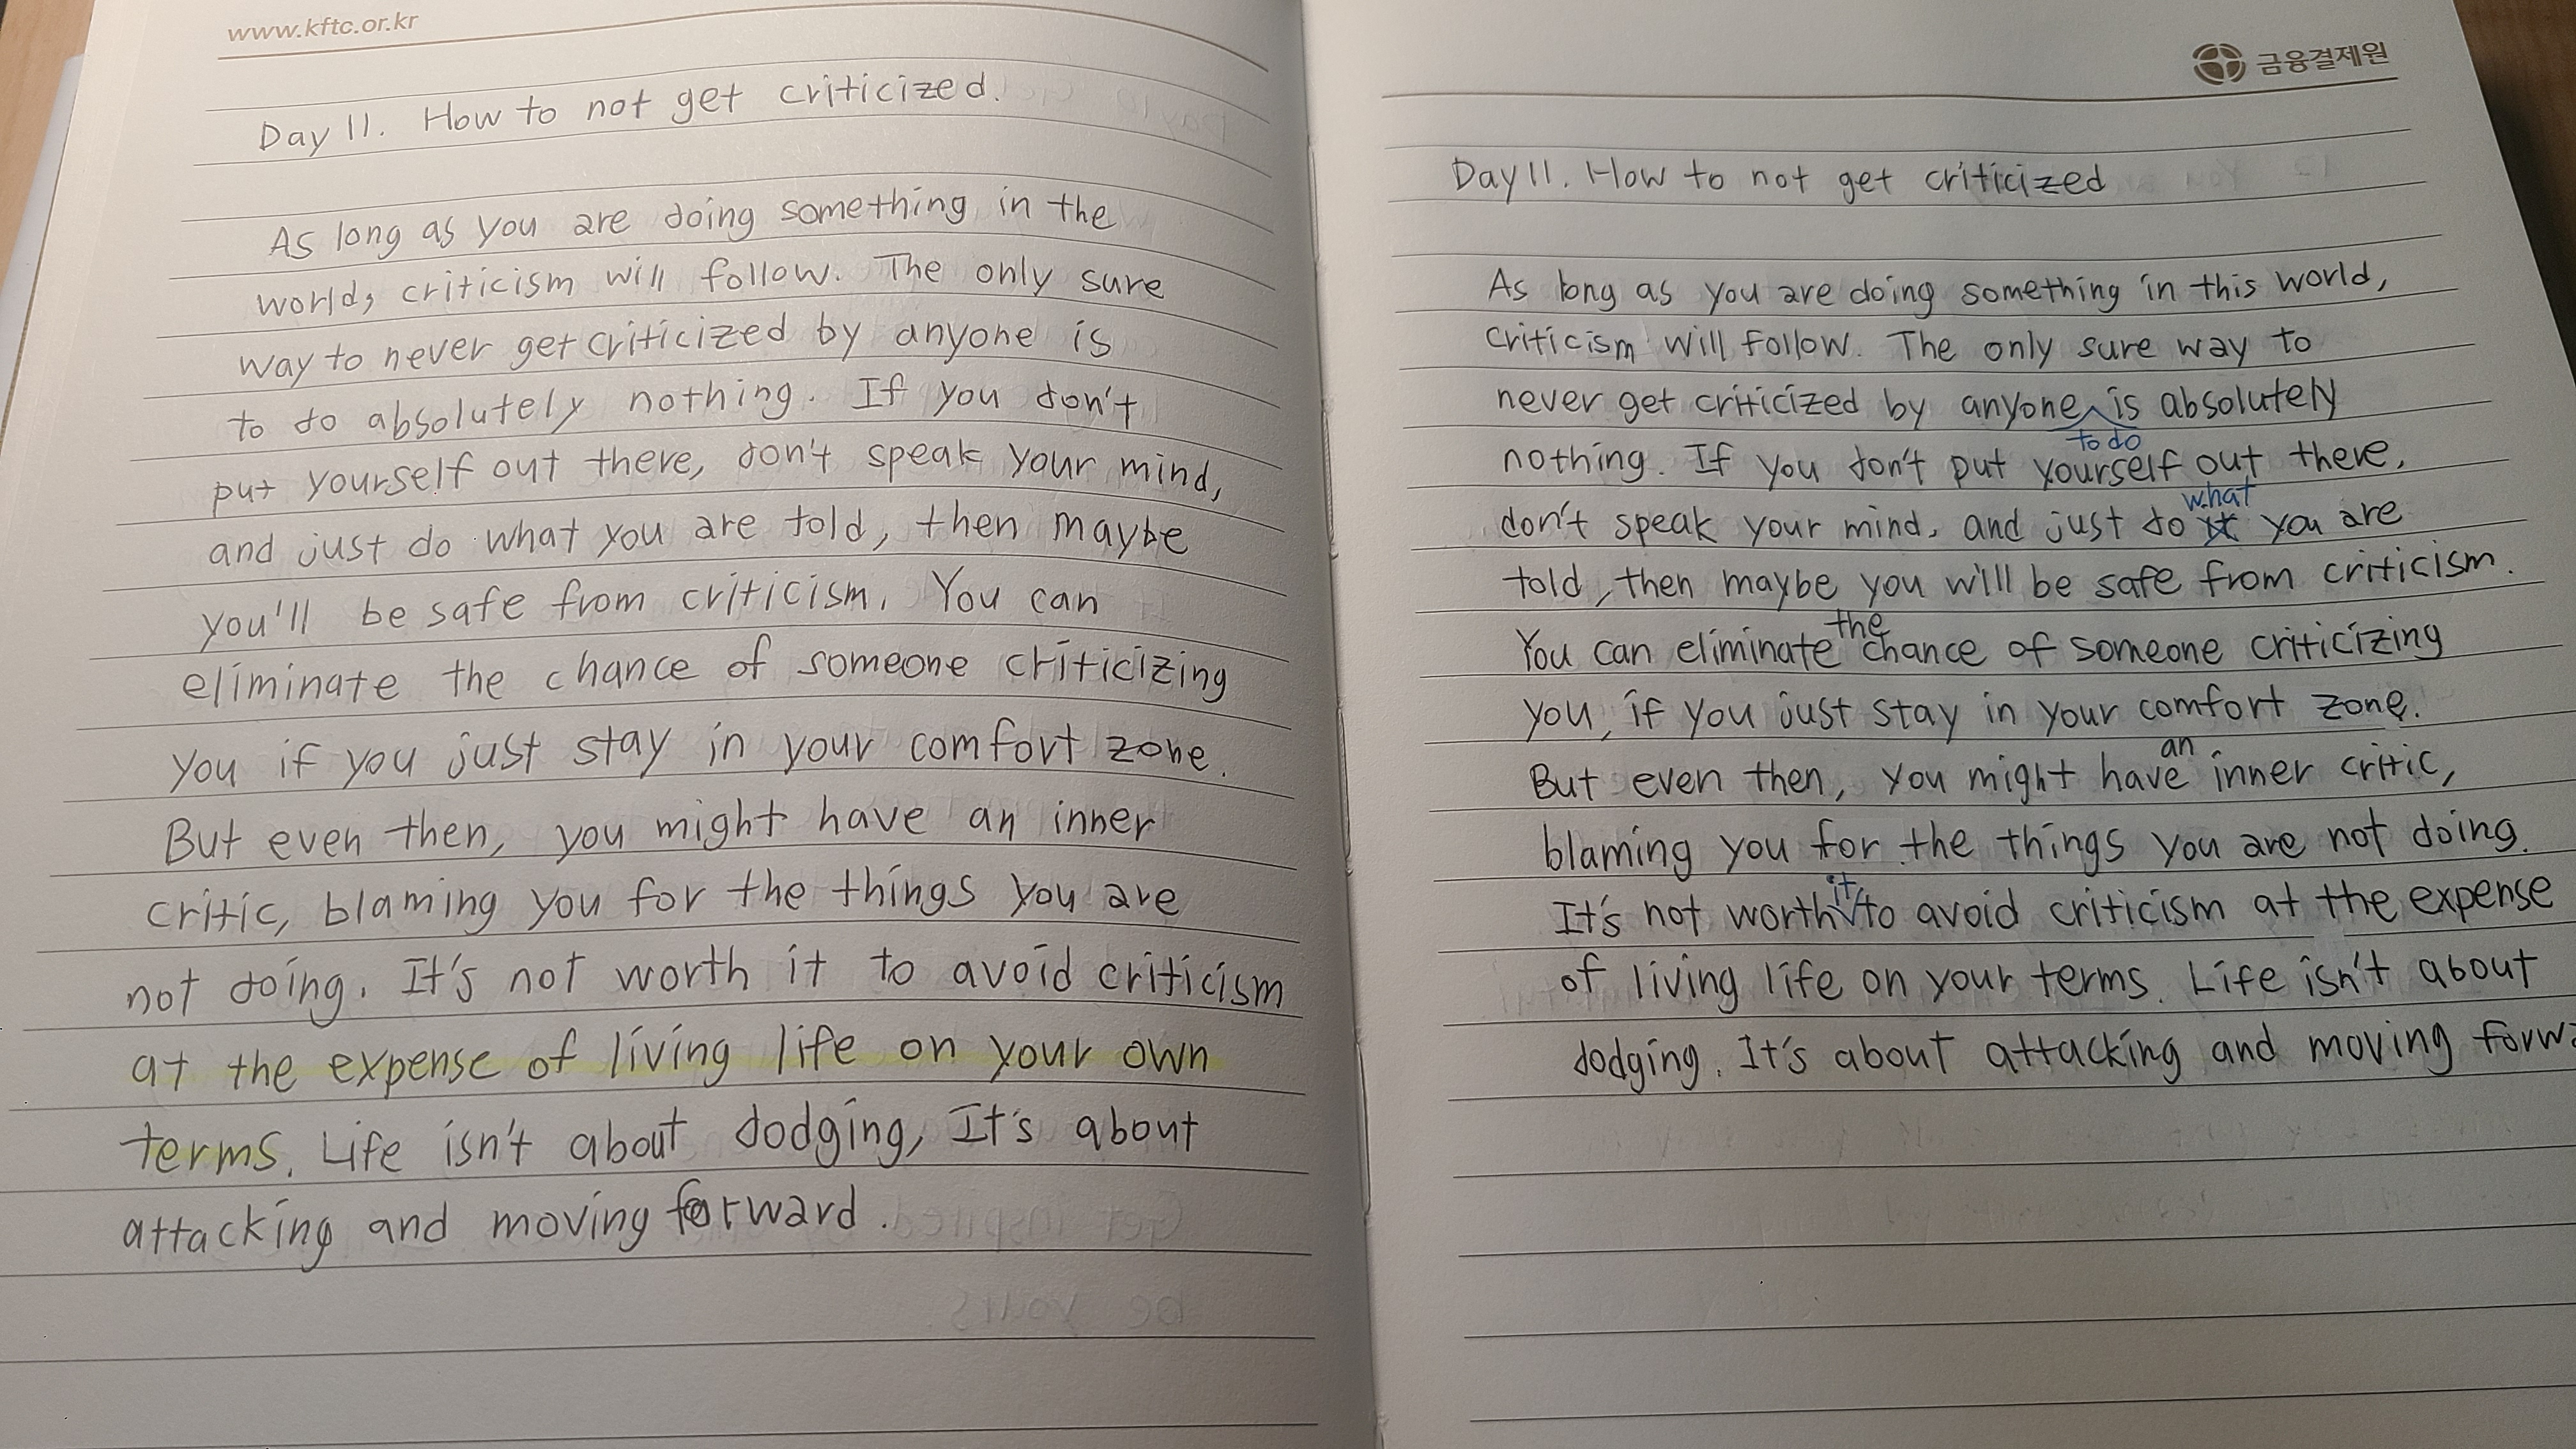 www.kftc.or.kr
Day 11. How to not get criticized.
As long as you are doing something in the
world, criticism will follow. The only sure
way to never get criticized by anyone is
to do absolutely nothing. If you don't
put yourself out there, don't speak your mind,
and just do what you are told, then maybe
you'll be safe from criticism. You can
eliminate the chance of someone criticizing
you if you just stay in your comfort zone.
But even then, you might have an inner
critic, blaming you for the things you are
not doing. It's not worth it to avoid criticism
at the expense of living life on your own
terms. Life isn't about dodging, It's about
attacking and moving forward.
금융결제원
Day 11. How to not get criticized
As long as you are doing something in this world,
criticism will follow. The only sure way to
never get criticized by anyone is absolutely
to do
nothing. If you don't put yourself out there,
what
don't speak your mind, and just do it you are
told, then maybe you will be safe from criticism.
the
You can eliminate chance of someone criticizing
you, if you just stay in your comfort zone.
an
But even then, you might have inner critic,
blaming you for the things you are not doing.
it
It's not worth to avoid criticism at the expense
of living life on your terms. Life isn't about
dodging. It's about attacking and moving forw